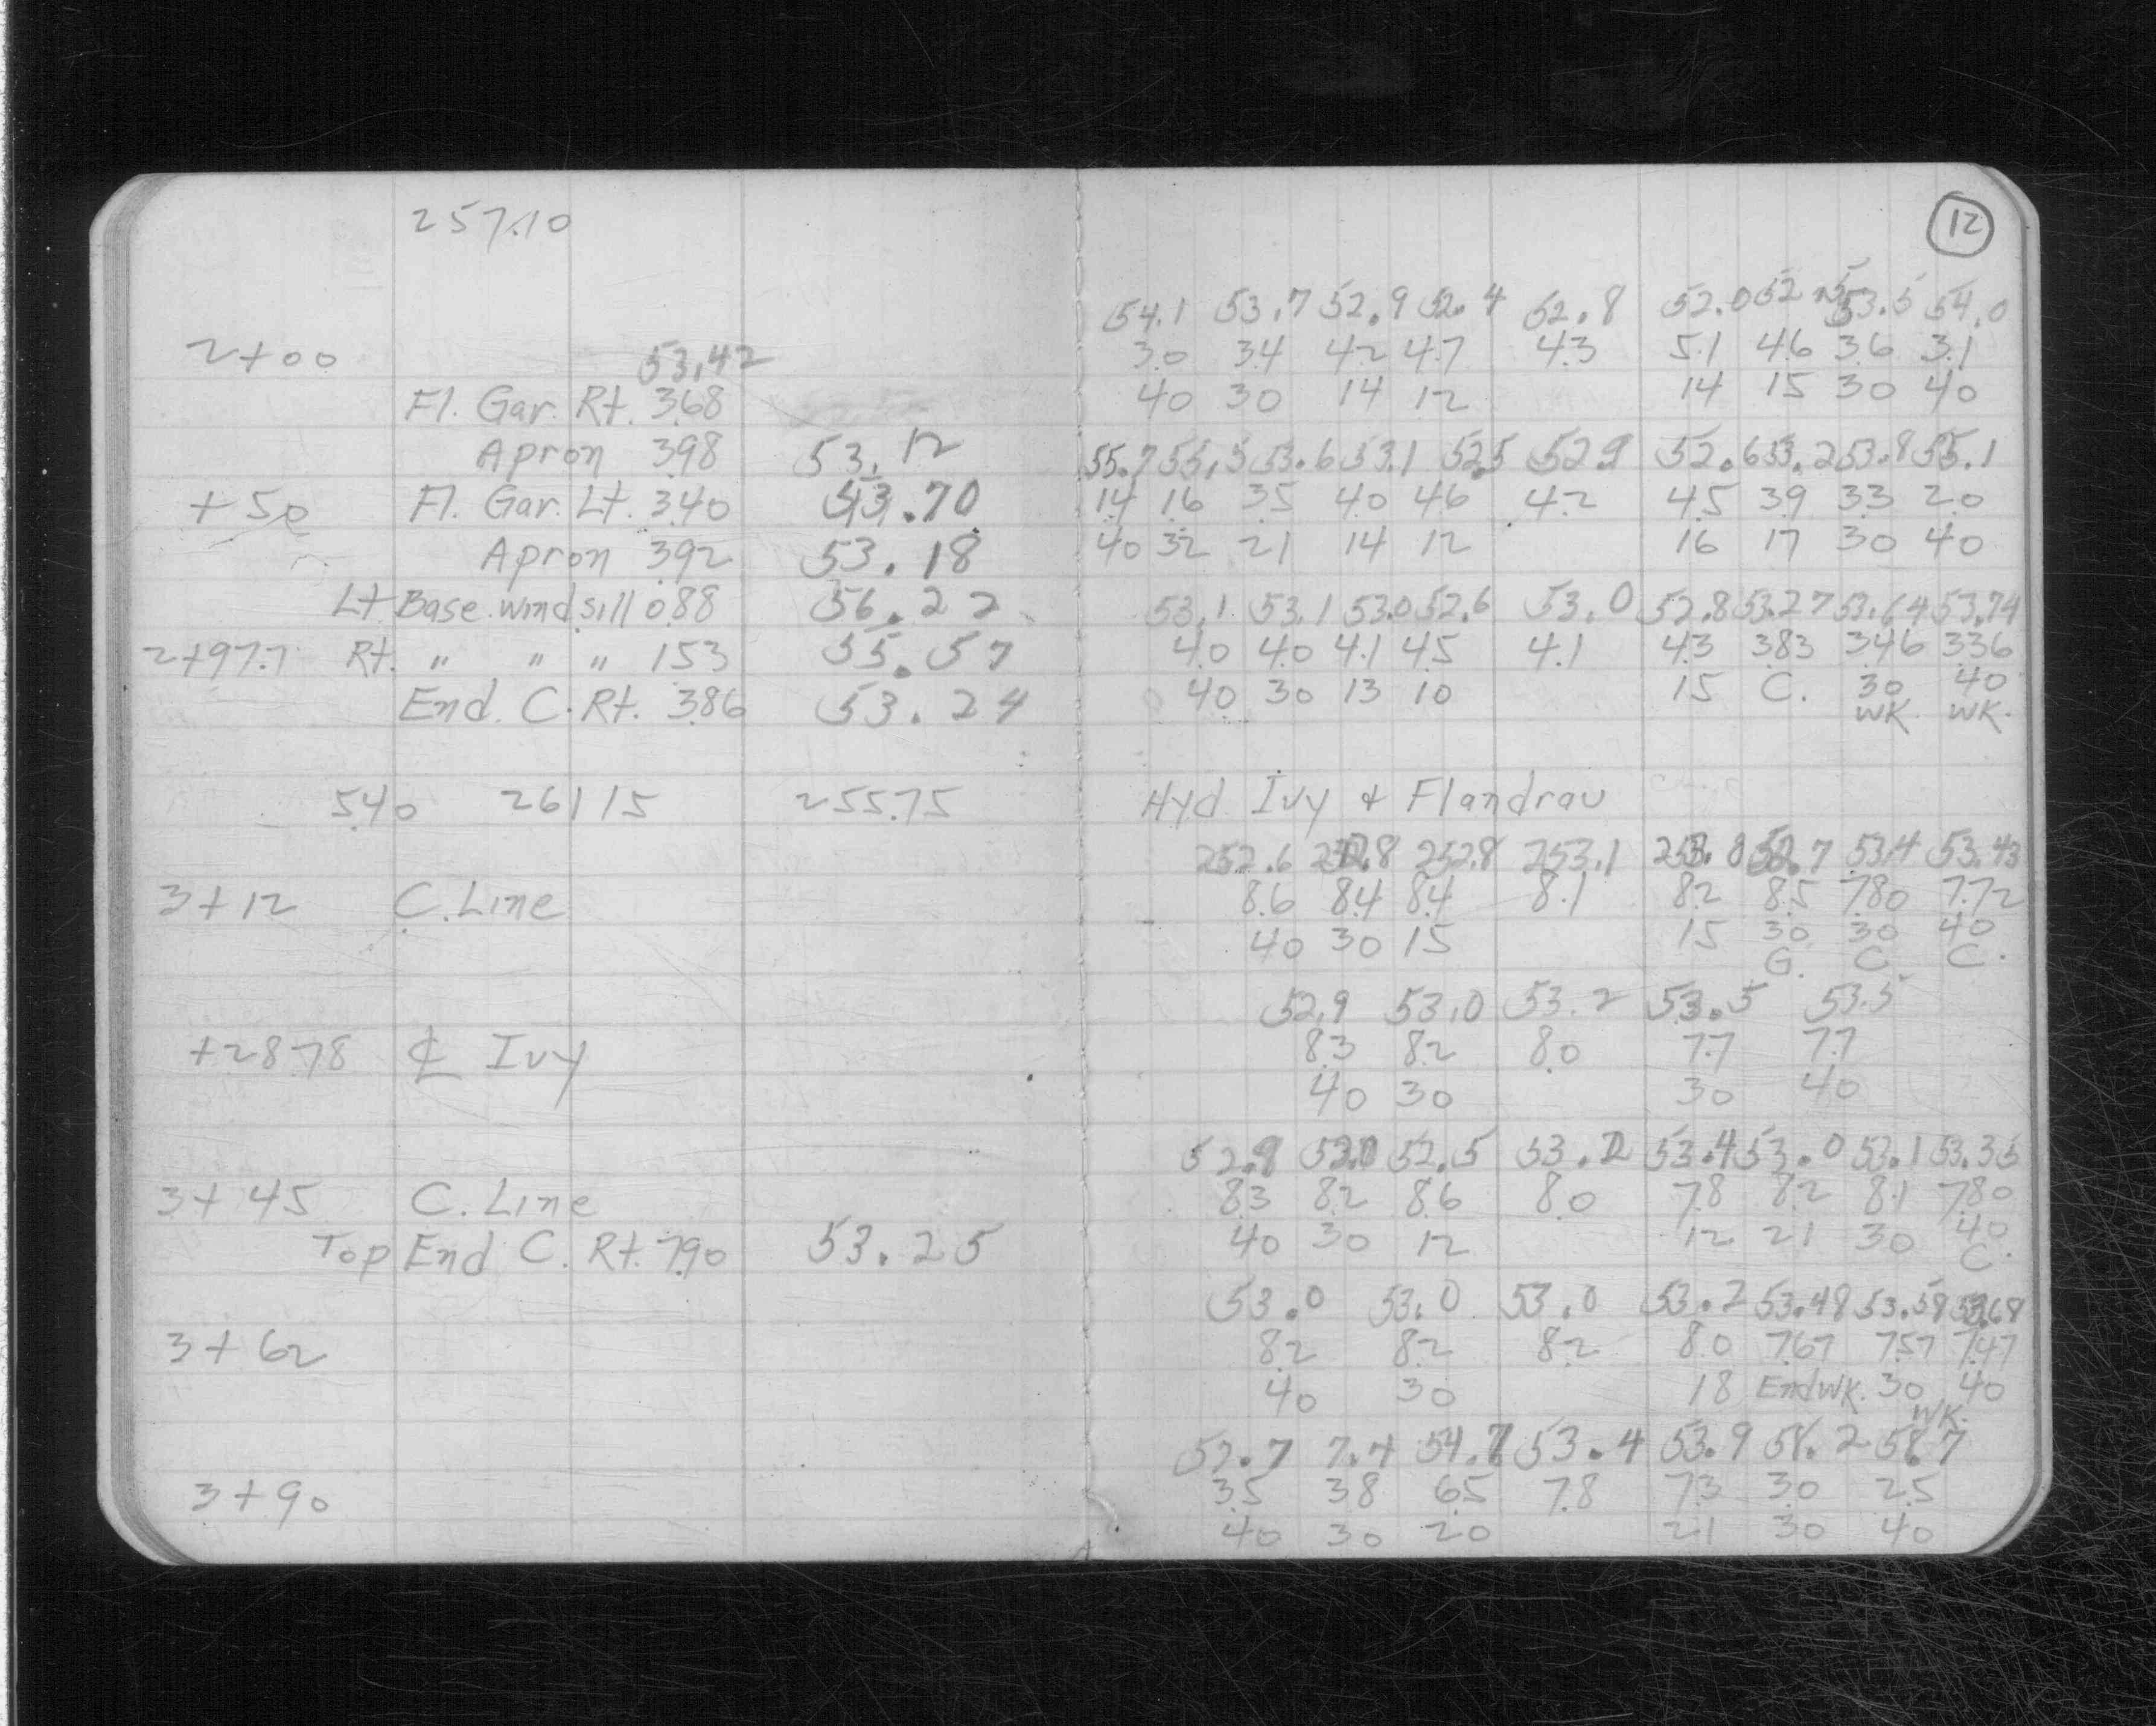 257.10
12
54.1 53.7 52.9 52.4 52.8 52.0 52.5 53.5 54.0
2+00 53.42 3.0 3.4 4.2 4.7 4.3 5.1 4.6 3.6 3.1
Fl. Gar. Rt. 3.68 40 30 14 12 14 15 30 40
Apron 3.98 53.12 55.7 55.5 53.6 53.1 52.5 52.9 52.6 53.2 53.8 55.1
+50 Fl. Gar. Lt. 3.40 53.70 1.4 1.6 3.5 4.0 4.6 4.2 4.5 3.9 3.3 2.0
Apron 3.92 53.18 40 32 21 14 12 16 17 30 40
Lt Base wind sill 0.88 56.22 53.1 53.1 53.0 52.6 53.0 52.8 53.27 53.64 53.74
2+97.7 Rt. " " " 1.53 55.57 4.0 4.0 4.1 4.5 4.1 4.3 3.83 3.46 3.36
End. C. Rt. 3.86 53.24 40 30 13 10 15 C. 30 40
WK. WK.
5.40 261.15 255.75 Hyd. Ivy & Flandrau
252.6 252.8 252.8 253.1 253.0 52.7 53.4 53.43
3+12 C. Line 8.6 8.4 8.4 8.1 8.2 8.5 7.80 7.72
40 30 15 15 30 30 40
G. C. C.
52.9 53.0 53.2 53.5 53.5
+28.78 ℄ Ivy 8.3 8.2 8.0 7.7 7.7
40 30 30 40
52.9 53.0 52.5 53.2 53.4 53.0 53.1 53.35
3+45 C. Line 8.3 8.2 8.6 8.0 7.8 8.2 8.1 7.80
Top End C. Rt. 7.90 53.25 40 30 12 12 21 30 40
C.
53.0 53.0 53.0 53.2 53.48 53.58 53.68
3+62 8.2 8.2 8.2 8.0 7.67 7.57 7.47
40 30 18 End WK. 30 40
WK.
57.7 7.4 54.7 53.4 53.9 58.2 58.7
3+90 3.5 3.8 6.5 7.8 7.3 3.0 2.5
40 30 20 21 30 40